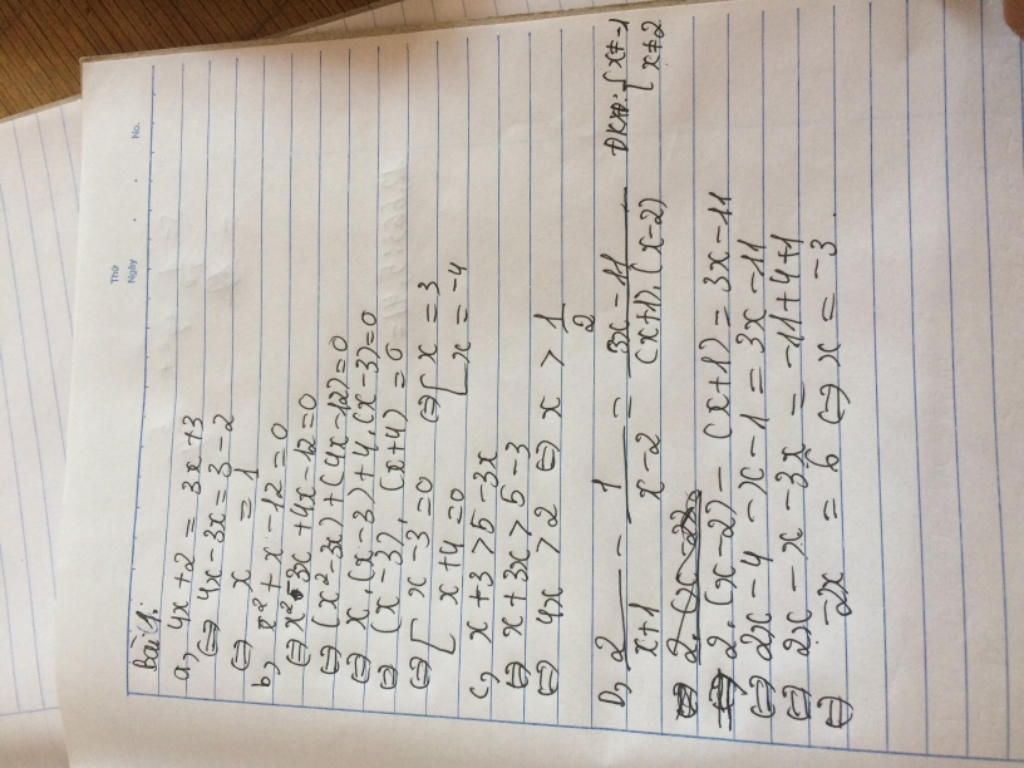 Thứ
Ngày . . No.
Bài 1:
a, 4x + 2 = 3x + 3
⇔ 4x - 3x = 3 - 2
⇔ x = 1
b, x² + x - 12 = 0
⇔ x² - 3x + 4x - 12 = 0
⇔ (x² - 3x) + (4x - 12) = 0
⇔ x.(x - 3) + 4.(x - 3) = 0
⇔ (x - 3).(x + 4) = 0
⇔ [ x - 3 = 0 ⇔ [ x = 3
x + 4 = 0 x = -4
c, x + 3 > 5 - 3x
⇔ x + 3x > 5 - 3
⇔ 4x > 2 ⇔ x > 1/2
D, 2/(x+1) - 1/(x-2) = (3x-11)/((x+1).(x-2)) ĐKXĐ: { x ≠ -1
x ≠ 2
⇔ 2.(x-2)
⇔ 2.(x-2) - (x+1) = 3x - 11
⇔ 2x - 4 - x - 1 = 3x - 11
⇔ 2x - x - 3x = -11 + 4 + 1
⇔ -2x = 6 ⇔ x = -3